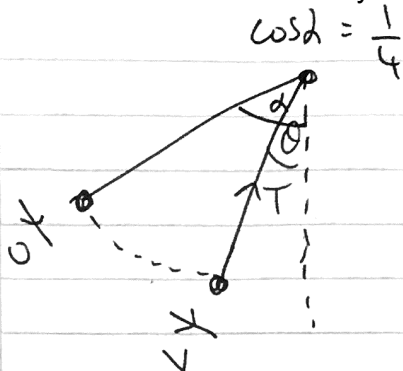 cos α = 1/4
α
θ
T
0
v